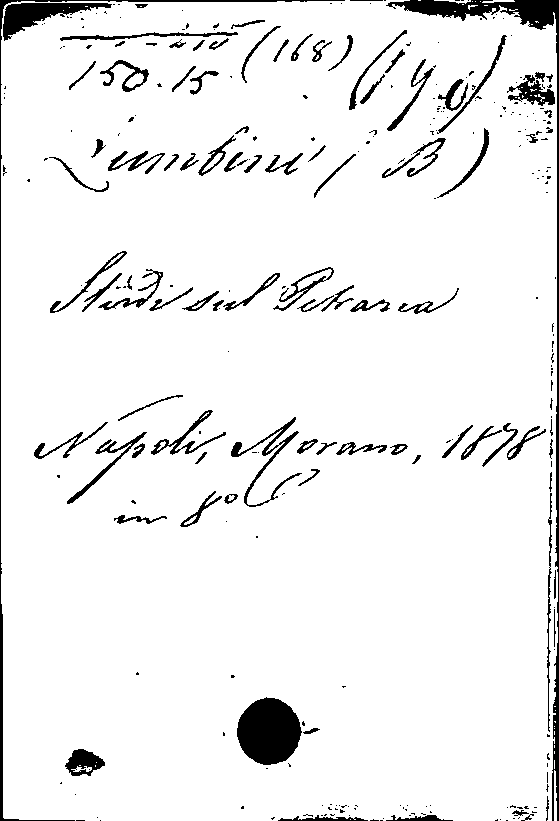 150.15 (168)
Zumbini (B)
Studi sul Petrarca
Napoli, Morano, 1878
in 8º